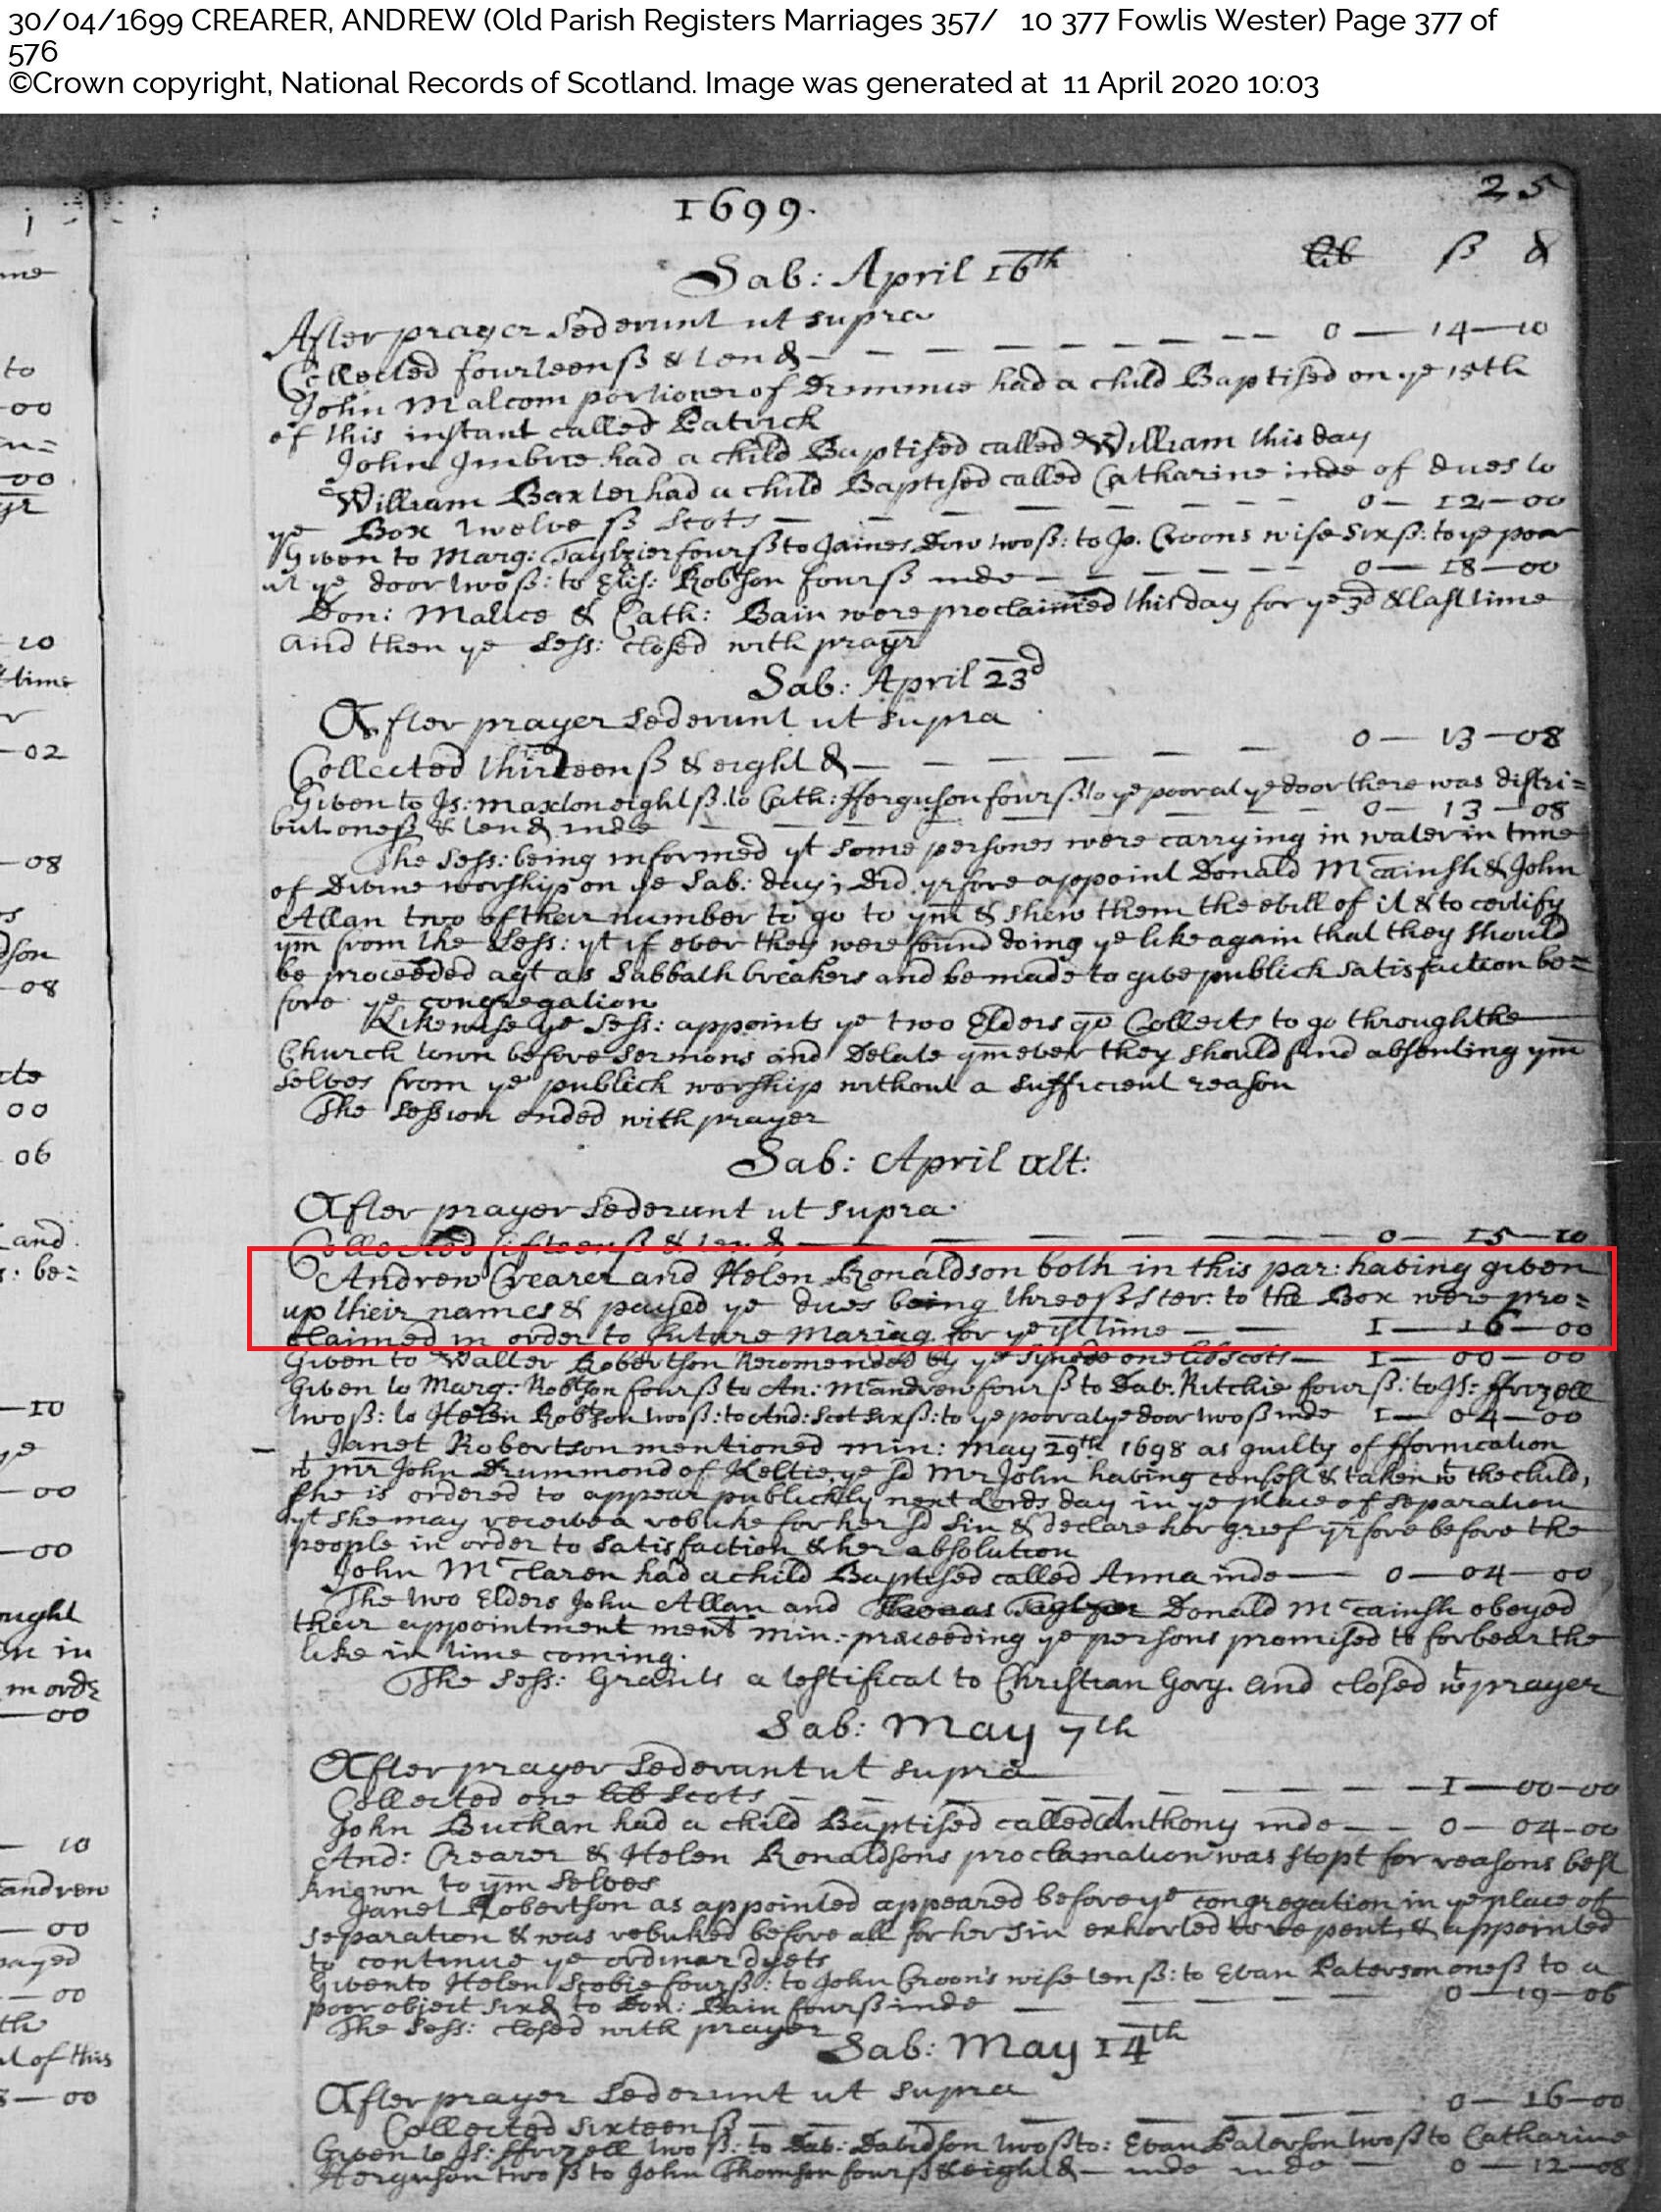 30/04/1699 CREARER, ANDREW (Old Parish Registers Marriages 357/ 10 377 Fowlis Wester) Page 377 of
576
©Crown copyright, National Records of Scotland. Image was generated at 11 April 2020 10:03
25
1699.
lib ß d
Sab: April 16th
After prayer sederunt ut supra
Collected fourteen ß & ten d — 0 — 14 — 10
John Malcom portioner of Drummie had a child Baptised on ye 15th
of this instant called Patrick
John Imbrie had a child Baptised called William this day
William Baxter had a child Baptised called Catharine inde of dues to
ye Box twelve ß Scots — 0 — 12 — 00
Given to Marg: Taylzier four ß to James Dow two ß: to Jo. Croons wife six ß: to ye poor
at ye door two ß: to Elis: Robtson four ß inde — 0 — 18 — 00
Don: Malice & Cath: Bain were proclaimed this day for ye 3d & last time
And then ye Sess: closed with prayr
Sab: April 23d
After prayer sederunt ut supra
Collected thirteen ß & eight d — 0 — 13 — 08
Given to Js: maxton eight ß. to Cath: fferguson four ß to ye poor at ye door there was distri=
but one ß & ten d inde — 0 — 13 — 08
The Sess: being informed yt some persones were carrying in water in time
of Divine worship on ye Sab: day; Did yrfore appoint Donald McCainsh & John
Allan two of their number to go to ym & shew them the evill of it & to certify
ym from the Sess: yt if ever they were found doing ye like again that they should
be proceeded agt as Sabbath breakers and be made to give publick satisfaction be=
fore ye congregation
Likewise ye Sess: appoints ye two Elders qo Collects to go through the
Church town before sermons and Delate qmever they should find absenting ym
selves from ye publick worship without a sufficient reason
The Session ended with prayer
Sab: April ult:
After prayer sederunt ut supra.
Collected fifteen ß & ten d — 0 — 15 — 10
Andrew Crearer and Helen Ronaldson both in this par: having given
up their names & payed ye dues being three ß ster: to the Box were pro=
claimed in order to future Mariag for ye ist time — 1 — 16 — 00
Given to Walter Robertson Recomended by ye Synode one lib Scots — 1 — 00 — 00
Given to Marg: Robtson four ß to An: Mcandrew four ß to Dav: Ritchie four ß: to Js: ffrizell
two ß: to Helen Robtson two ß: to And: Scot six ß: to ye poor at ye door two ß inde 1 — 04 — 00
Janet Robertson mentioned min: May 29th 1698 as guilty of fformication
wt Mr John Drummond of Keltie, ye sd Mr John having confest & taken wt the child,
she is ordered to appear publickly next Lords day in ye place of separation
yt she may receive a rebuke for her sd sin & declare her grief yrfore before the
people in order to satisfaction & her absolution
John McClaren had a child Baptised called Anna inde — 0 — 04 — 00
The two Elders John Allan and Donald McCainsh obeyed
their appointment ment min: preceeding ye persons promised to forbear the
like in time coming.
The Sess: Grants a testifical to Christian Gory. and closed wt prayer
Sab: May 7th
After prayer sederunt ut supra
Collected one lib Scots — 1 — 00 — 00
John Buckan had a child Baptised called Anthony inde — 0 — 04 — 00
And: Crearer & Helen Ronaldsons proclamation was stopt for reasons best
known to ym selves
Janet Robertson as appointed appeared before ye congregation in ye place of
separation & was rebuked before all for her sin exhorted to repent, & appointed
to continue ye ordinar dyets
Given to Helen Scobie four ß: to John Croon's wife ten ß: to Evan Paterson one ß to a
poor object six d to Don: Bain four ß inde — 0 — 19 — 06
The Sess: closed with prayer
Sab: May 14th
After prayer sederunt ut supra
Collected sixteen ß — 0 — 16 — 00
Given to Js: ffrizell two ß: to Dav: Davidson two ß to: Evan Paterson two ß to Catharine
fferguson two ß to John Thomson four ß & eight d — inde — 0 — 12 — 08